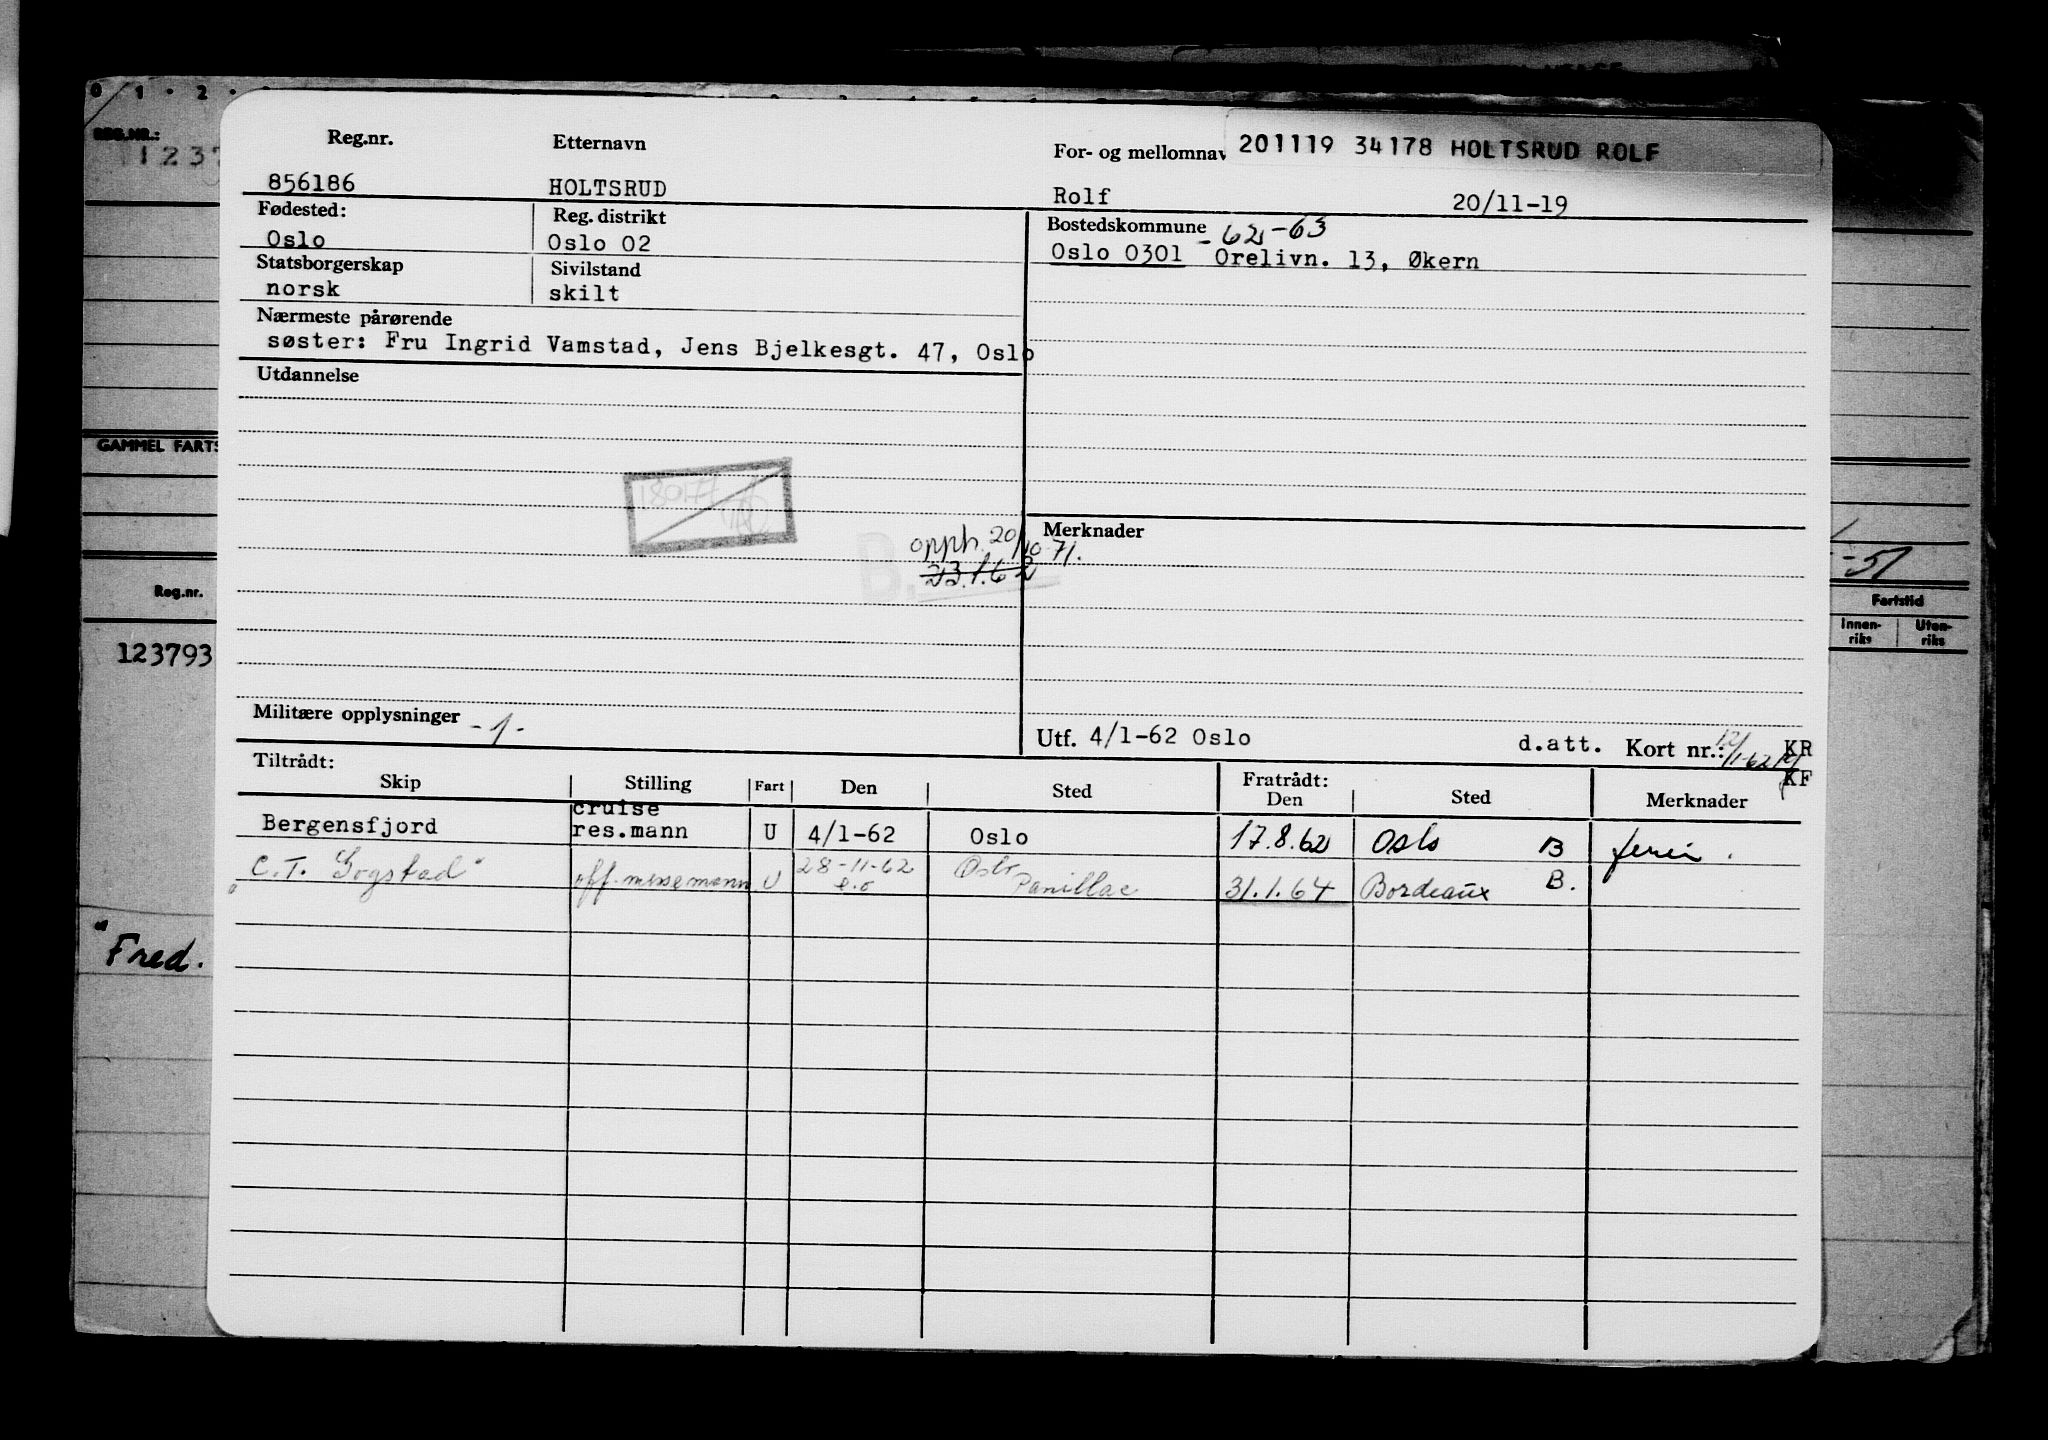 0 1 2
REG.NR.:
1237
GAMMEL FARTS
Reg.nr.
123793
"Fred.
Reg.nr. Etternavn For- og mellomnav 201119 34178 HOLTSRUD ROLF
856186 HOLTSRUD Rolf 20/11-19
Fødested: Reg. distrikt Bostedskommune - 62-63
Oslo Oslo 02 Oslo 0301 Orelivn. 13, Økern
Statsborgerskap Sivilstand
norsk skilt
Nærmeste pårørende
søster: Fru Ingrid Vamstad, Jens Bjelkesgt. 47, Oslo
Utdannelse
180177
opph. 20/10-71. Merknader
B. 23.1.62
Militære opplysninger - 1 -
Utf. 4/1-62 Oslo d.att. Kort nr.: 12/1-62 KR
KF
Tiltrådt: Fratrådt:
Skip Stilling Fart Den Sted Den Sted Merknader
cruise
Bergensfjord res.mann U 4/1-62 Oslo 17.8.62 Oslo B ferie.
"C.T. Gogstad" off.messemann U 28-11-62 Oslo
Panillac 31.1.64 Bordeaux B.
-51
Fartstid
Innen-
riks Uten-
riks